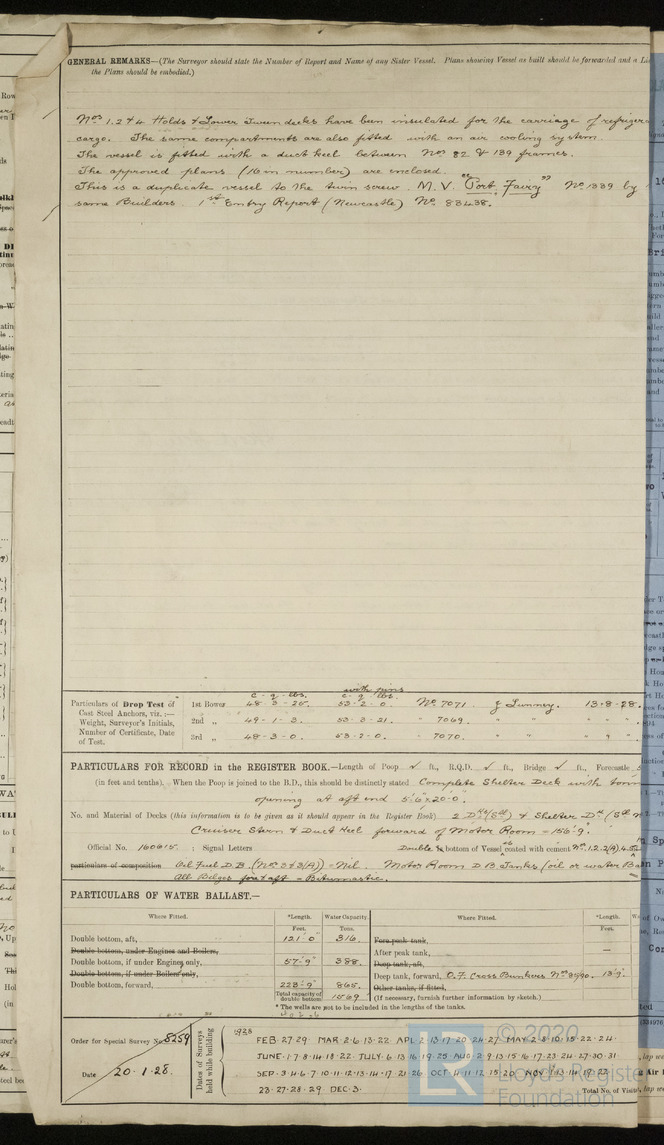 GENERAL REMARKS—(The Surveyor should state the Number of Report and Name of any Sister Vessel. Plans showing Vessel as built should be forwarded and a
the Plans should be embodied.)
Nos 1.2 & 4 Holds & Lower Tween decks have been insulated for the carriage of
cargo. The same compartments are also fitted with an air cooling system
The vessel is fitted with a duct keel between Nos 82 & 139 frames.
The approved plans (16 in number) are enclosed.
This is a duplicate vessel to the twin screw M.V. "Port Fairy" No 1339 by
same Builders. 1st Entry Report (Newcastle) No 83438.
with pins
c - q - lbs. c - q - lbs.
Particulars of Drop Test of Cast Steel Anchors, viz. :— Weight, Surveyor's Initials, Number of Certificate, Date of Test.
1st Bower 48-3-25. 53-2-0. No 7071 J Lunney. 13-8-28.
2nd „ 49-1-3. 53-3-21. " 7069. " " " " "
3rd „ 48-3-0. 53-2-0. " 7070. " " " " "
PARTICULARS FOR RECORD in the REGISTER BOOK.—Length of Poop ✓ ft., R.Q.D. ✓ ft., Bridge ✓ ft., Forecastle
(in feet and tenths). When the Poop is joined to the B.D., this should be distinctly stated Complete Shelter Deck with
opening at aft end 5'6" x 20'0.
No. and Material of Decks (this information is to be given as it should appear in the Register Book) 2 Dks (Stl) & Shelter Dk (Stl
Cruiser Stern & Duct Keel forward of Motor Room - 156'9.
Official No. 160615. : Signal Letters Double bottom of Vessel coated with cement Nos 1.2.2(A) 4.5
particulars of composition Oil Fuel D.B. (Nos 3 & 3(A)) - Nil. Motor Room D.B. Tanks (oil or water
All Bilges fore & aft - Bitumastic.
PARTICULARS OF WATER BALLAST.—
Where Fitted. *Length. Water Capacity. Where Fitted. *Length.
Feet. Tons. Feet.
Double bottom, aft, 121'0" 316. Fore peak tank,
Double bottom, under Engines and Boilers, After peak tank, —
Double bottom, if under Engines only, 57'9" 388. Deep tank, aft,
Double bottom, if under Boilers only, Deep tank, forward, O.F. Cross Bunkers 13'9"
Double bottom, forward, 228'9" 865. Other tanks, if fitted,
Total capacity of double bottom 1569 (If necessary, furnish further information by sketch.)
* The wells are not to be included in the lengths of the tanks.
Order for Special Survey No. 5259
Date 20.1.28.
Dates of Surveys held while building
1928
FEB.27.29. MAR.2.6.13.22. APL.2.13.17.20.24.27. MAY.2.8.10.15.22.24.
JUNE.1.7.8.14.18.22. JULY.6.13.16.19.25. AUG.2.9.13.15.16.17.23.24.27.30.31.
SEP.3.4.6.7.10.11.12.13.14.17.21.26. OCT.4.11.12.15.20. NOV.
23.27.28.29 DEC.3.
Total No. of Visits
© 2020
Lloyd's Register
Foundation